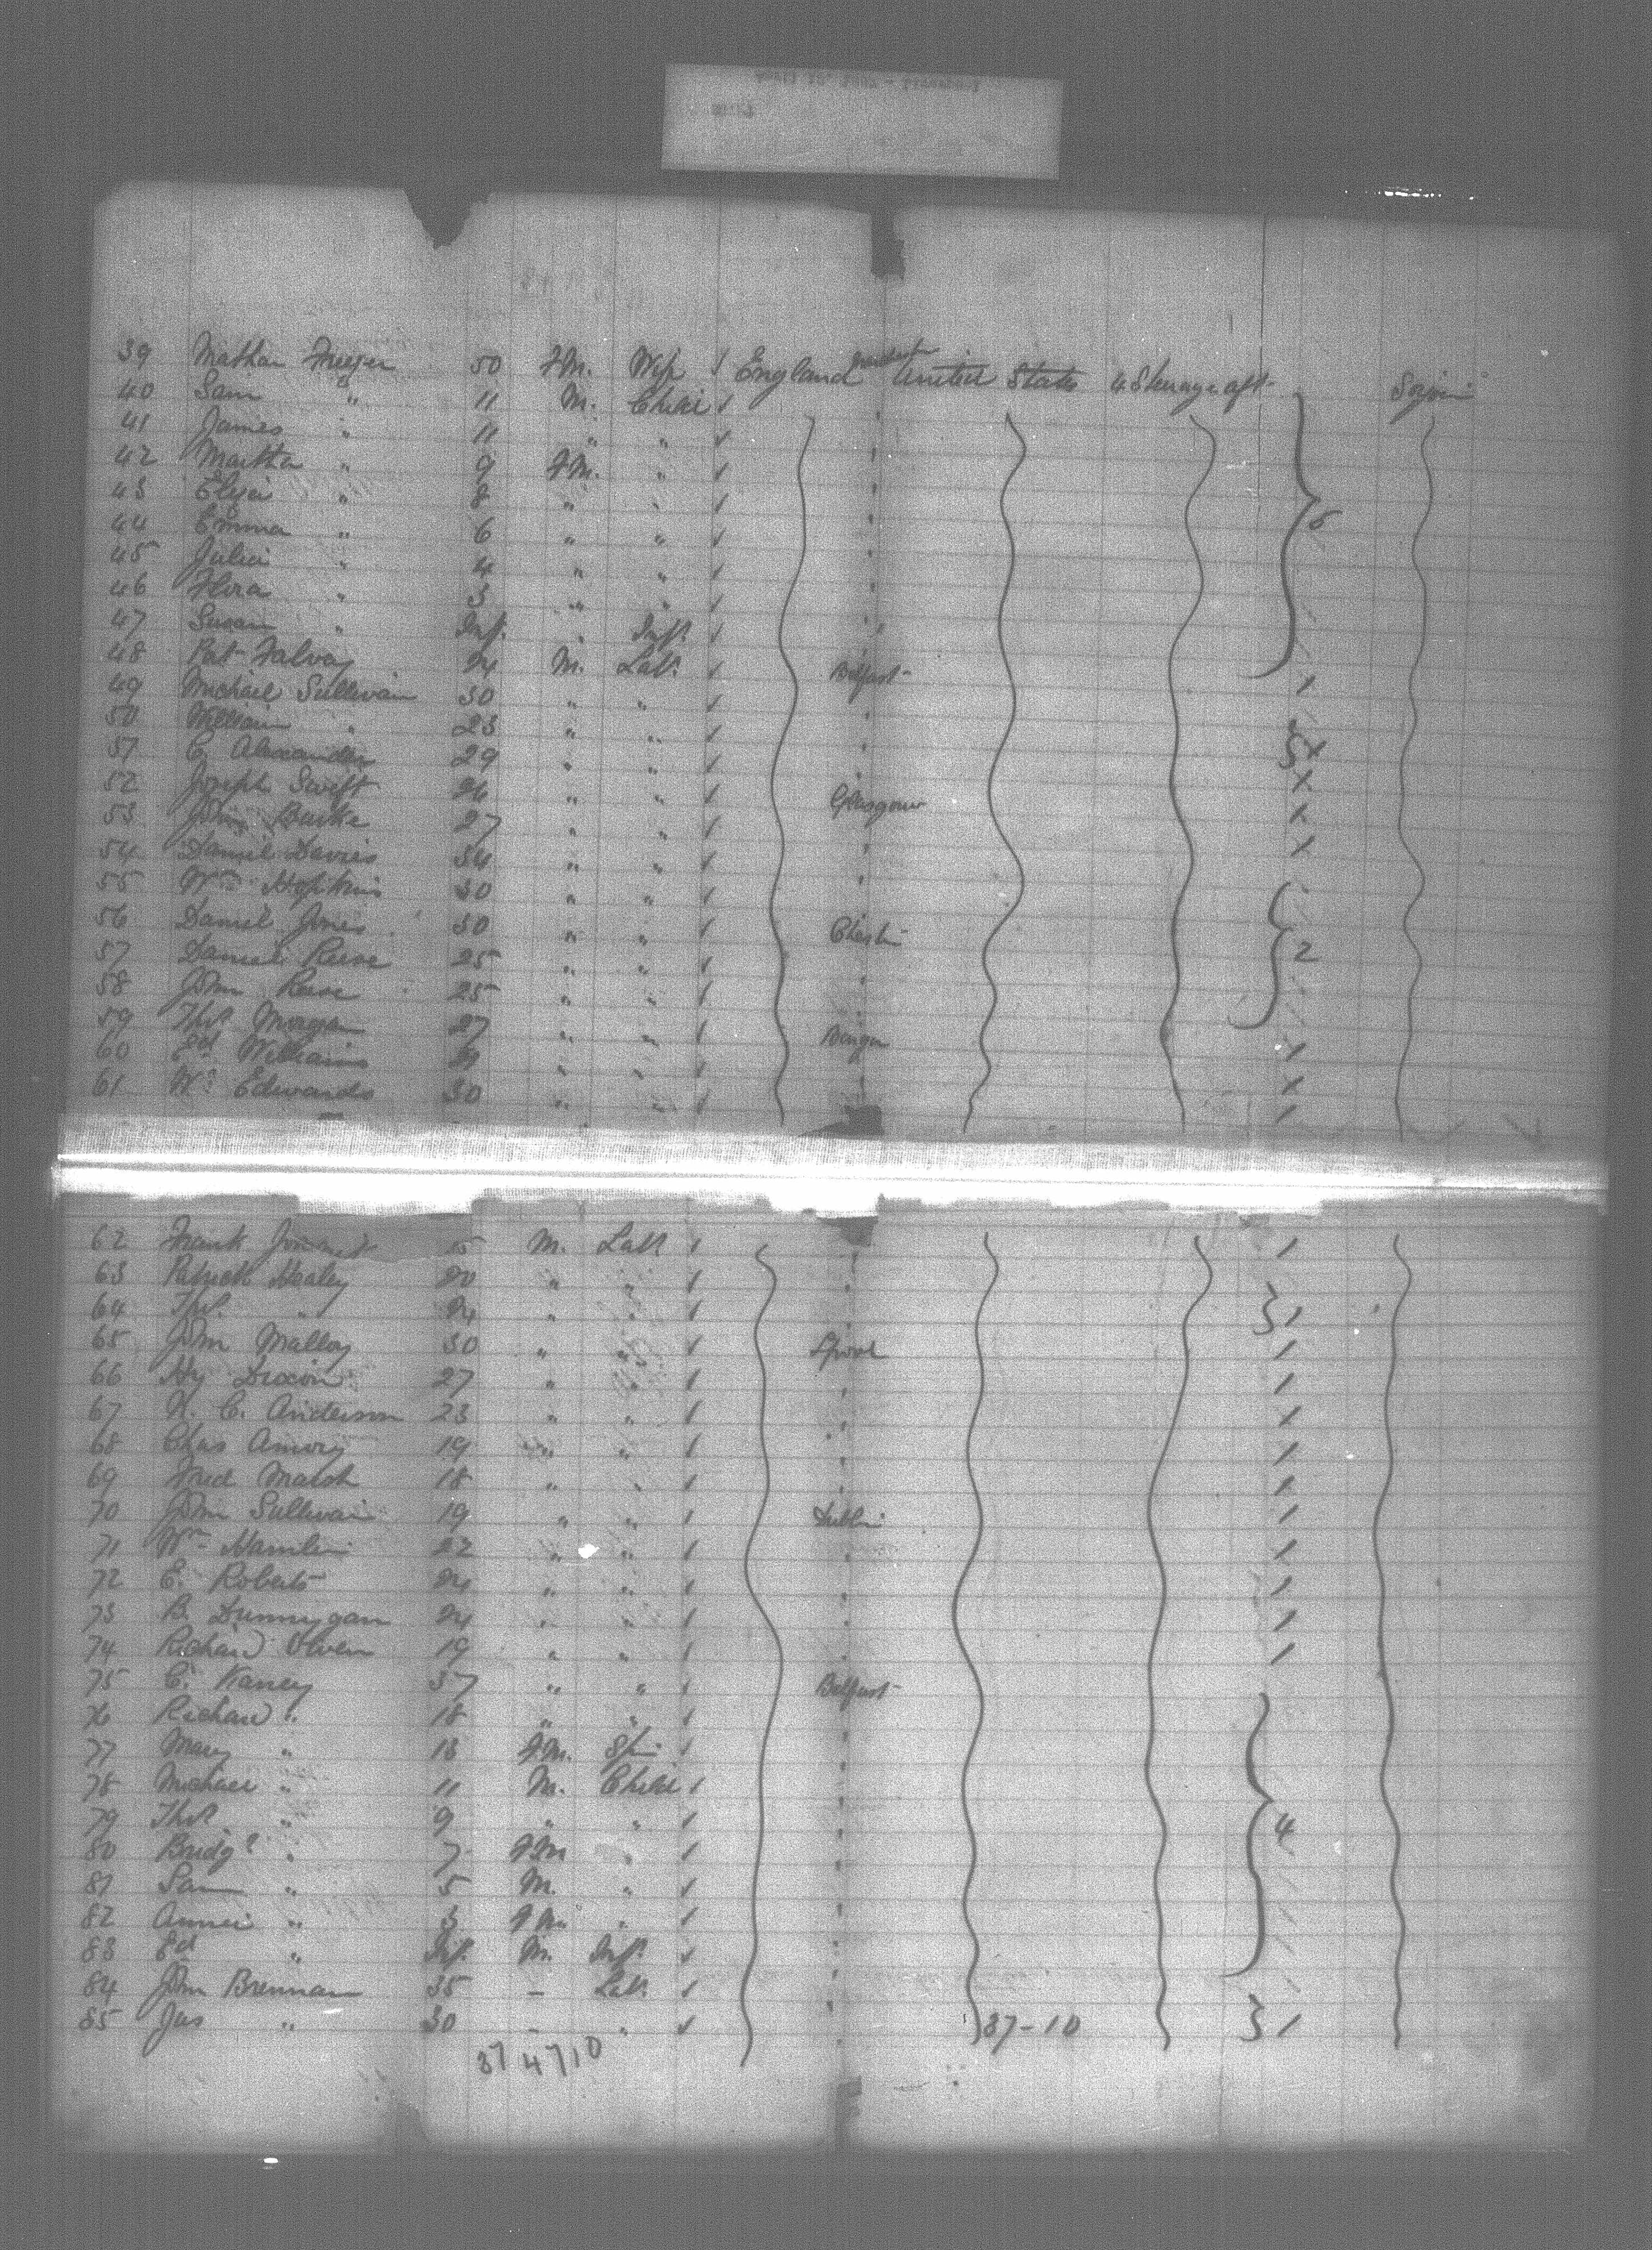 39 Fm. Wife / England United States 4 Steerage aft Sojourn
40 Sam " 11 M. Child /
41 James " 11 " " /
42 Martha " 9 Fm. " /
43 Eliza " 8 " " /
44 Emma " 6 " " /
45 Julia " 4 " " /
46 Flora " 3 " " /
47 Susan " Inf. " Inf. /
48 Pat Falvey 24 M. Lab. / Belfast 1
49 Michael Sullivan 30 " " /
50 William " 23 " " /
51 C. Alexander 29 " " /
52 Joseph Swift 26 " " / Glasgow
53 John Burke 27 " " /
54 Daniel Davies 34 " " /
55 Wm Hopkins 30 " " /
56 Daniel Jones 30 " " / Chester
57 Daniel Reese 25 " " / 2
58 John Reese 25 " " /
59 Thos. Morgan 27 " " / Bangor 1
60 Ed Williams " " / 1
61 Wm Edwards 30 " " / 1
62 Frank M. Lab. / 1
63 Patrick Healey 20 " " /
64 Thos. " 24 " " / 1
65 John Malloy 30 " " / L'pool 1
66 Hy Dixon 27 " " / 1
67 N. C. Anderson 23 " " / 1
68 Chas Amory 19 " " / 1
69 Fred Marsh 18 " " / 1
70 John Sullivan 19 " " / Dublin 1
71 Wm Hamlin 22 " " / 1
72 E. Roberts 24 " " / 1
73 B. Dunnygan 24 " " / 1
74 Richard Owen 19 " " / 1
75 C. 37 " " / Belfast
76 Richard " 18 " " /
77 Mary " 13 Fm. Spin /
78 Michael " 11 M. Child /
79 Thos. " 9 " " /
80 Bridgt " 7 Fm " / 4
81 Sam " 5 M. " /
82 Annie " 3 Fm. " /
83 Ed " Inf. M. Inf. /
84 John Brennan 35 - Lab. /
85 Jas " 30 - " / 37-10 1
37 47 10